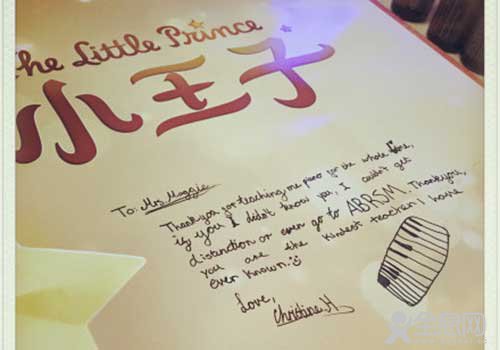 The Little Prince
小王子
To: Mrs Maggie
Thankyou for teaching me piano for the whole time,
if you I didn't know you, I couldn't get
distinction or even go to ABRSM. Thankyou,
you are the kindest teacher I have
ever known.
Love,
Christine.H